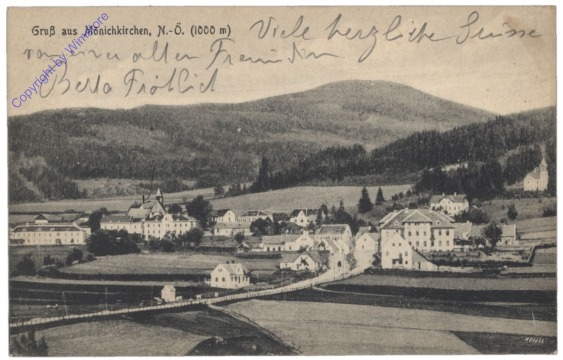 Gruß aus Mönichkirchen, N.-Ö. (1000 m)
Viele herzliche Grüsse
von einer alten Freundin
Berta Fröhlich
Copyright by Winstore